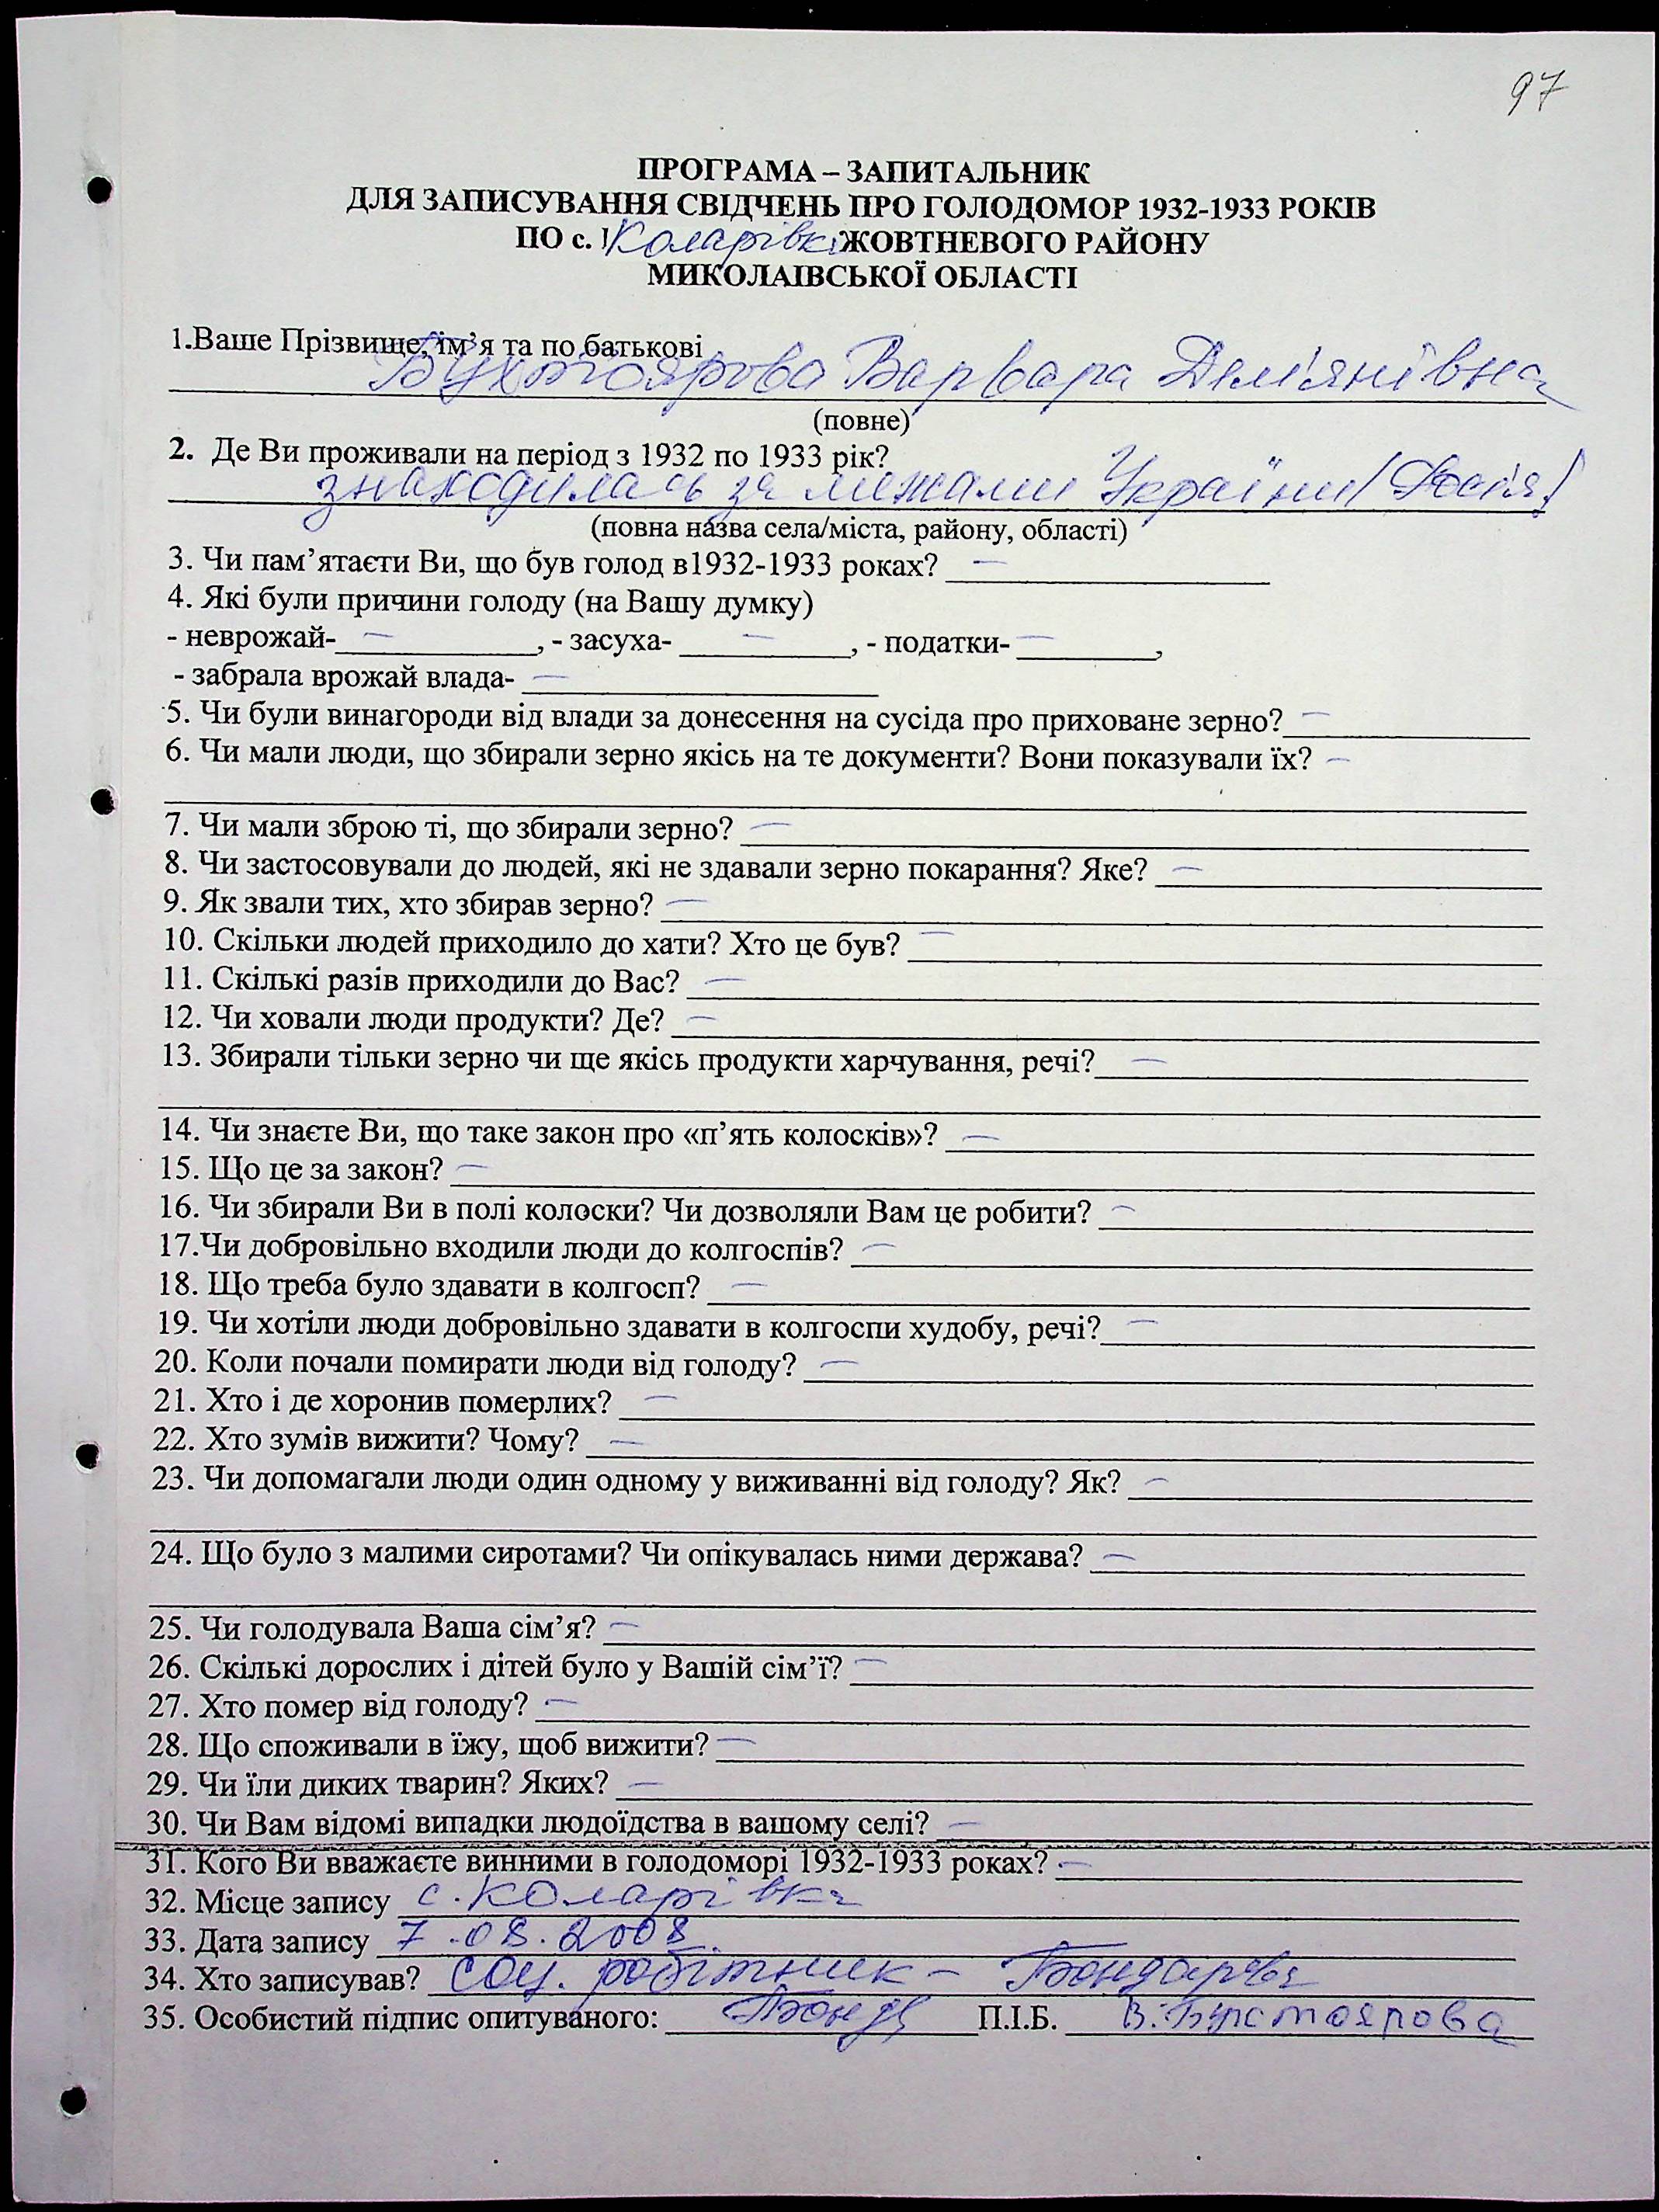 97
ПРОГРАМА – ЗАПИТАЛЬНИК
ДЛЯ ЗАПИСУВАННЯ СВІДЧЕНЬ ПРО ГОЛОДОМОР 1932-1933 РОКІВ
ПО с. Коларівка ЖОВТНЕВОГО РАЙОНУ
МИКОЛАЇВСЬКОЇ ОБЛАСТІ
1.Ваше Прізвище, ім’я та по батькові
Бухтоярова Варвара Дем'янівна
(повне)
2. Де Ви проживали на період з 1932 по 1933 рік?
знаходилась за межами України /Росія/
(повна назва села/міста, району, області)
3. Чи пам’ятаєти Ви, що був голод в1932-1933 роках? —
4. Які були причини голоду (на Вашу думку)
- неврожай- —, - засуха- —, - податки- —,
- забрала врожай влада- —
5. Чи були винагороди від влади за донесення на сусіда про приховане зерно? —
6. Чи мали люди, що збирали зерно якісь на те документи? Вони показували їх? —
7. Чи мали зброю ті, що збирали зерно? —
8. Чи застосовували до людей, які не здавали зерно покарання? Яке? —
9. Як звали тих, хто збирав зерно? —
10. Скільки людей приходило до хати? Хто це був? —
11. Скількі разів приходили до Вас? —
12. Чи ховали люди продукти? Де? —
13. Збирали тільки зерно чи ще якісь продукти харчування, речі? —
14. Чи знаєте Ви, що таке закон про «п’ять колосків»? —
15. Що це за закон? —
16. Чи збирали Ви в полі колоски? Чи дозволяли Вам це робити? —
17.Чи добровільно входили люди до колгоспів? —
18. Що треба було здавати в колгосп? —
19. Чи хотіли люди добровільно здавати в колгоспи худобу, речі? —
20. Коли почали помирати люди від голоду? —
21. Хто і де хоронив померлих? —
22. Хто зумів вижити? Чому? —
23. Чи допомагали люди один одному у виживанні від голоду? Як? —
24. Що було з малими сиротами? Чи опікувалась ними держава? —
25. Чи голодувала Ваша сім’я? —
26. Скількі дорослих і дітей було у Вашій сім’ї? —
27. Хто помер від голоду? —
28. Що споживали в їжу, щоб вижити? —
29. Чи їли диких тварин? Яких? —
30. Чи Вам відомі випадки людоїдства в вашому селі? —
31. Кого Ви вважаєте винними в голодоморі 1932-1933 роках? —
32. Місце запису с. Коларівка
33. Дата запису 7.08.2008.
34. Хто записував? соц. робітник – Бондарєва
35. Особистий підпис опитуваного: П.І.Б. В. Бухтоярова